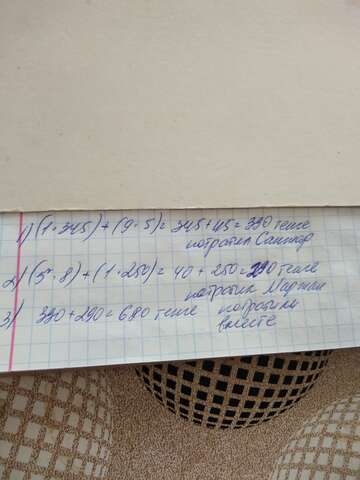 1) (1·345) + (9·5) = 345 + 45 = 390 тенге
потратил Санжар
2) (5·8) + (1·250) = 40 + 250 = 290 тенге
потратил
3) 390 + 290 = 680 тенге потратили
вместе